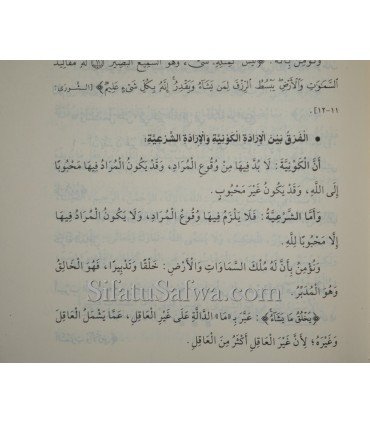 وَنُؤْمِنُ بِأَنَّهُ: ﴿لَيْسَ كَمِثْلِهِ شَيْءٌ وَهُوَ السَّمِيعُ الْبَصِيرُ ۝ لَهُ مَقَالِيدُ
السَّمَوَاتِ وَالْأَرْضِ يَبْسُطُ الرِّزْقَ لِمَن يَشَاءُ وَيَقْدِرُ إِنَّهُ بِكُلِّ شَيْءٍ عَلِيمٌ﴾ [الشورى:
١١-١٢].
• الْفَرْقُ بَيْنَ الْإِرَادَةِ الْكَوْنِيَّةِ وَالْإِرَادَةِ الشَّرْعِيَّةِ:
أَنَّ الْكَوْنِيَّةَ: لَا بُدَّ فِيهَا مِنْ وُقُوعِ الْمُرَادِ، وَقَدْ يَكُونُ الْمُرَادُ فِيهَا مَحْبُوبًا
إِلَى اللَّهِ، وَقَدْ يَكُونُ غَيْرَ مَحْبُوبٍ.
وَأَمَّا الشَّرْعِيَّةُ: فَلَا يَلْزَمُ فِيهَا وُقُوعُ الْمُرَادِ، وَلَا يَكُونُ الْمُرَادُ فِيهَا
إِلَّا مَحْبُوبًا لِلَّهِ.
وَنُؤْمِنُ بِأَنَّ لَهُ مُلْكَ السَّمَاوَاتِ وَالْأَرْضِ: خَلْقًا وَتَدْبِيرًا، فَهُوَ الْخَالِقُ
وَهُوَ الْمُدَبِّرُ.
SifatuSafwa.com
﴿يَخْلُقُ مَا يَشَاءُ﴾: عَبَّرَ بِـ«مَا» الدَّالَّةِ عَلَى غَيْرِ الْعَاقِلِ، عَمَّا يَشْمَلُ الْعَاقِلَ
وَغَيْرَهُ؛ لِأَنَّ غَيْرَ الْعَاقِلِ أَكْثَرُ مِنَ الْعَاقِلِ.